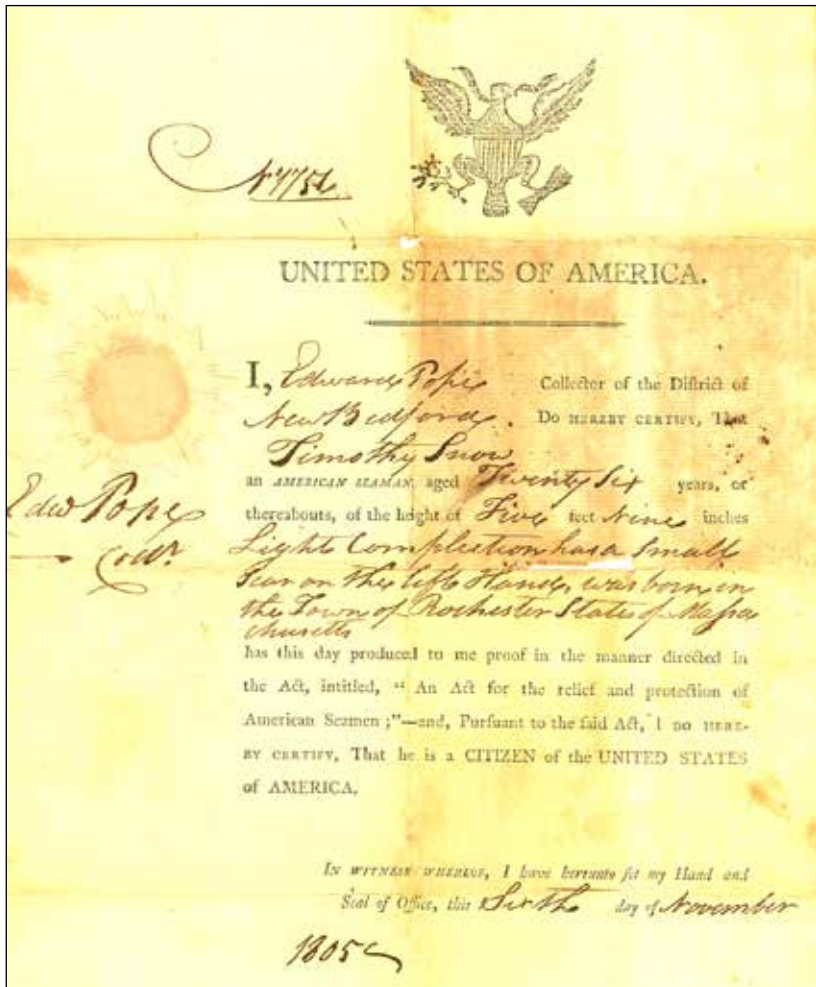 UNITED STATES OF AMERICA.
I, Edward Pope Collector of the District of
New Bedford. DO HEREBY CERTIFY, That
Timothy Snow
an AMERICAN SEAMAN, aged Twenty Six years, or
thereabouts, of the height of Five feet Nine inches
Light Complection has a Small
Scar on the left Hand, was born in
the Town of Rochester State of Massa
chusetts
Edw Pope
Collr.
has this day produced to me proof in the manner directed in
the Act, intitled, “ An Act for the relief and protection of
American Seamen ;”—and, Pursuant to the said Act, I DO HERE-
BY CERTIFY, That he is a CITIZEN of the UNITED STATES
of AMERICA.
IN WITNESS WHEREOF, I have hereunto set my Hand and
Seal of Office, this Sixth day of November
1805